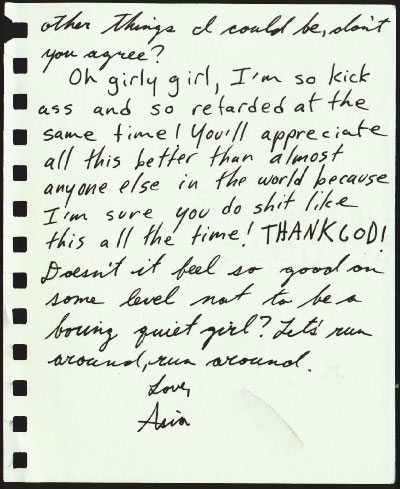 other things I could be, don't
you agree?
Oh girly girl, I'm so kick
ass and so retarded at the
same time! You'll appreciate
all this better than almost
anyone else in the world because
I'm sure you do shit like
this all the time! THANK GOD!
Doesn't it feel so good on
some level not to be a
boring quiet girl? Let's run
around, run around.
Love,
Asia